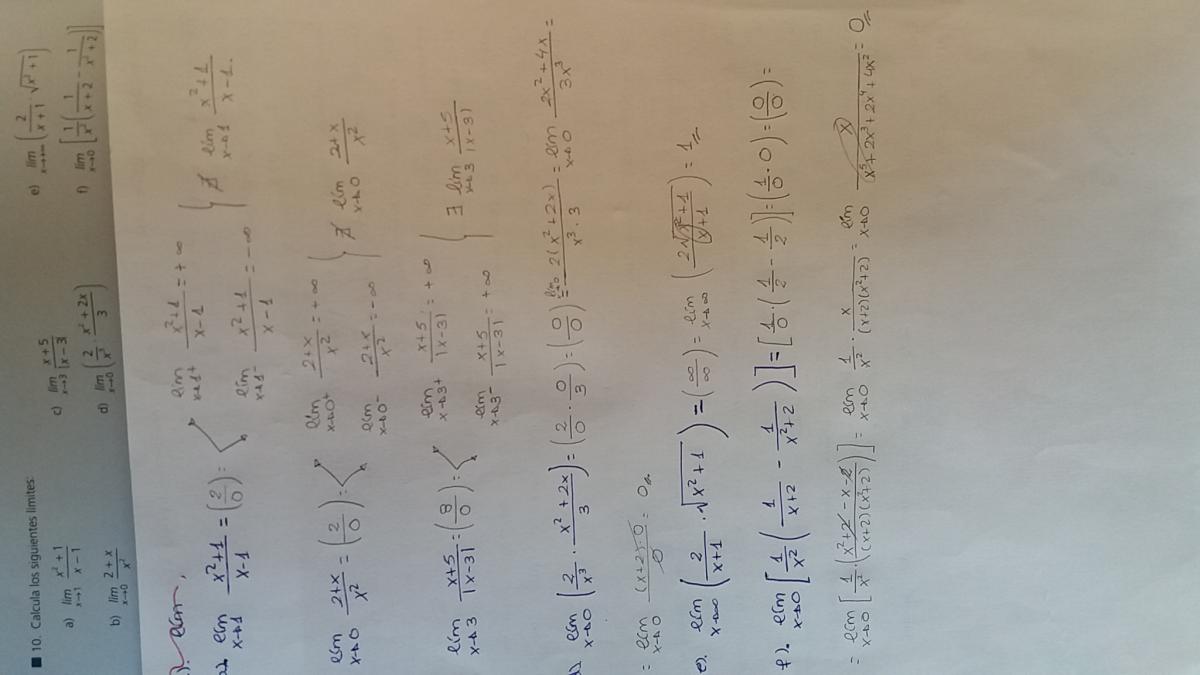 10. Calcula los siguientes límites:
a) lim x→1 (x²+1)/(x−1)
b) lim x→0 (2+x)/x²
c) lim x→3 (x+5)/|x−3|
d) lim x→0 (2/x³ · (x²+2x)/3)
e) lim x→+∞ (2/(x+1) · √(x²+1))
f) lim x→0 [1/x² (1/(x+2) − 1/(x²+2))]
lím
lím x→1 (x²+1)/(x−1) = (2/0) =
lím x→1⁺ (x²+1)/(x−1) = +∞
lím x→1⁻ (x²+1)/(x−1) = −∞
∄ lím x→1 (x²+1)/(x−1).
lím x→0 (2+x)/x² = (2/0) =
lím x→0⁺ (2+x)/x² = +∞
lím x→0⁻ (2+x)/x² = −∞
∄ lím x→0 (2+x)/x²
lím x→3 (x+5)/|x−3| = (8/0) =
lím x→3⁺ (x+5)/|x−3| = +∞
lím x→3⁻ (x+5)/|x−3| = +∞
∃ lím x→3 (x+5)/|x−3|
lím x→0 (2/x³ · (x²+2x)/3) = (2/0 · 0/3) = (0/0) = lím x→0 2(x²+2x)/(x³·3) = lím x→0 (2x²+4x)/3x³ =
= lím x→0 (x+2)·0/0 = 0
e). lím x→∞ (2/(x+1) · √(x²+1)) = (∞/∞) = lím x→∞ (2√(x²+1)/(x+1)) = 1
f). lím x→0 [1/x² (1/(x+2) − 1/(x²+2))] = [1/0 · (1/2 − 1/2)] = (1/0 · 0) = (0/0) =
= lím x→0 [1/x² · ((x²+2−x−2)/((x+2)(x²+2)))] = lím x→0 1/x² · x/((x+2)(x²+2)) = lím x→0 x/(x⁵+2x³+2x⁴+4x²) = 0